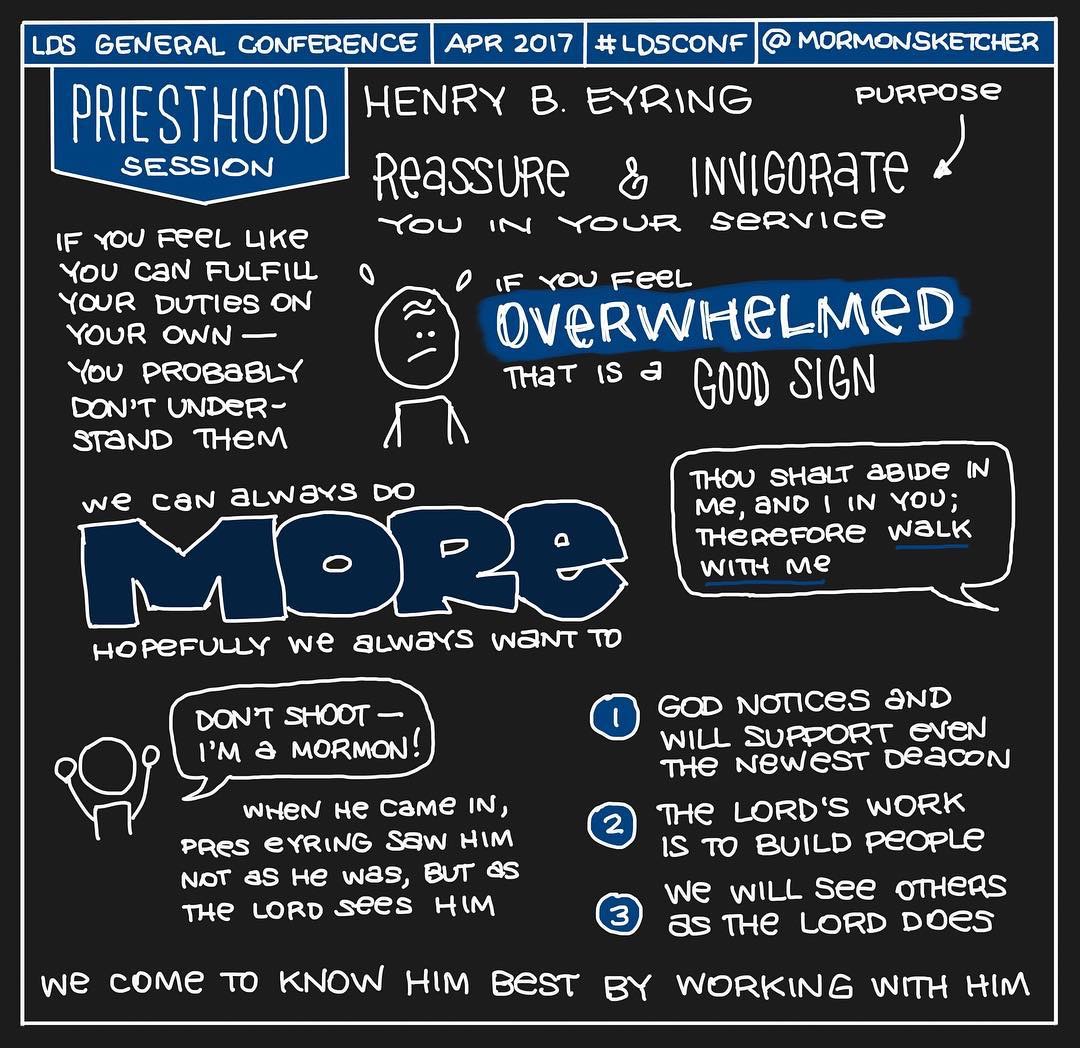 LDS GENERAL CONFERENCE APR 2017 #LDSCONF @MORMONSKETCHER
PRIESTHOOD
SESSION
HENRY B. EYRING
PURPOSE
REASSURE & INVIGORATE
YOU IN YOUR SERVICE
IF YOU FEEL LIKE
YOU CAN FULFILL
YOUR DUTIES ON
YOUR OWN —
YOU PROBABLY
DON'T UNDER-
STAND THEM
IF YOU FEEL
OVERWHELMED
THAT IS A GOOD SIGN
WE CAN ALWAYS DO
MORE
HOPEFULLY WE ALWAYS WANT TO
THOU SHALT ABIDE IN
ME, AND I IN YOU;
THEREFORE WALK
WITH ME
DON'T SHOOT —
I'M A MORMON!
WHEN HE CAME IN,
PRES EYRING SAW HIM
NOT AS HE WAS, BUT AS
THE LORD SEES HIM
1 GOD NOTICES AND
WILL SUPPORT EVEN
THE NEWEST DEACON
2 THE LORD'S WORK
IS TO BUILD PEOPLE
3 WE WILL SEE OTHERS
AS THE LORD DOES
WE COME TO KNOW HIM BEST BY WORKING WITH HIM